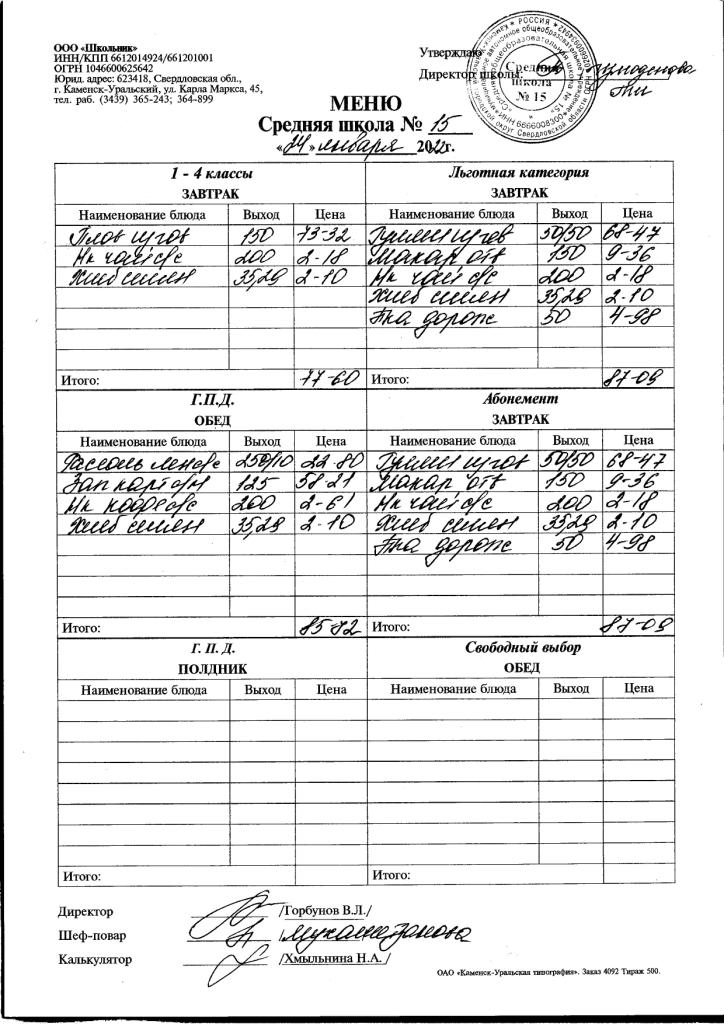 ООО «Школьник»
ИНН/КПП 6612014924/661201001
ОГРН 1046600625642
Юрид. адрес: 623418, Свердловская обл.,
г. Каменск-Уральский, ул. Карла Маркса, 45,
тел. раб. (3439) 365-243; 364-899
Утверждаю
Директор школы:
Средняя
школа
№ 15
МЕНЮ
Средняя школа № 15
«24» января 2022г.
1 - 4 классы
ЗАВТРАК
Наименование блюда Выход Цена
Плов 150 73-32
Нк чай с/с 200 2-18
Хлеб 35,29 2-10
Итого: 77-60
Льготная категория
ЗАВТРАК
Наименование блюда Выход Цена
50/50 68-47
Макар отв 150 9-36
Нк чай с/с 200 2-18
Хлеб 35,29 2-10
дорож 50 4-98
Итого: 87-09
Г.П.Д.
ОБЕД
Наименование блюда Выход Цена
250/10 22-80
Зап карт 125 58-21
Нк 200 2-61
Хлеб 35,29 2-10
Итого: 85-72
Абонемент
ЗАВТРАК
Наименование блюда Выход Цена
50/50 68-47
Макар отв 150 9-36
Нк чай с/с 200 2-18
Хлеб 35,29 2-10
дорож 50 4-98
Итого: 87-09
Г. П. Д.
ПОЛДНИК
Наименование блюда Выход Цена
Итого:
Свободный выбор
ОБЕД
Наименование блюда Выход Цена
Итого:
Директор /Горбунов В.Л./
Шеф-повар
Калькулятор /Хмыльнина Н.А. /
ОАО «Каменск-Уральская типография». Заказ 4092 Тираж 500.